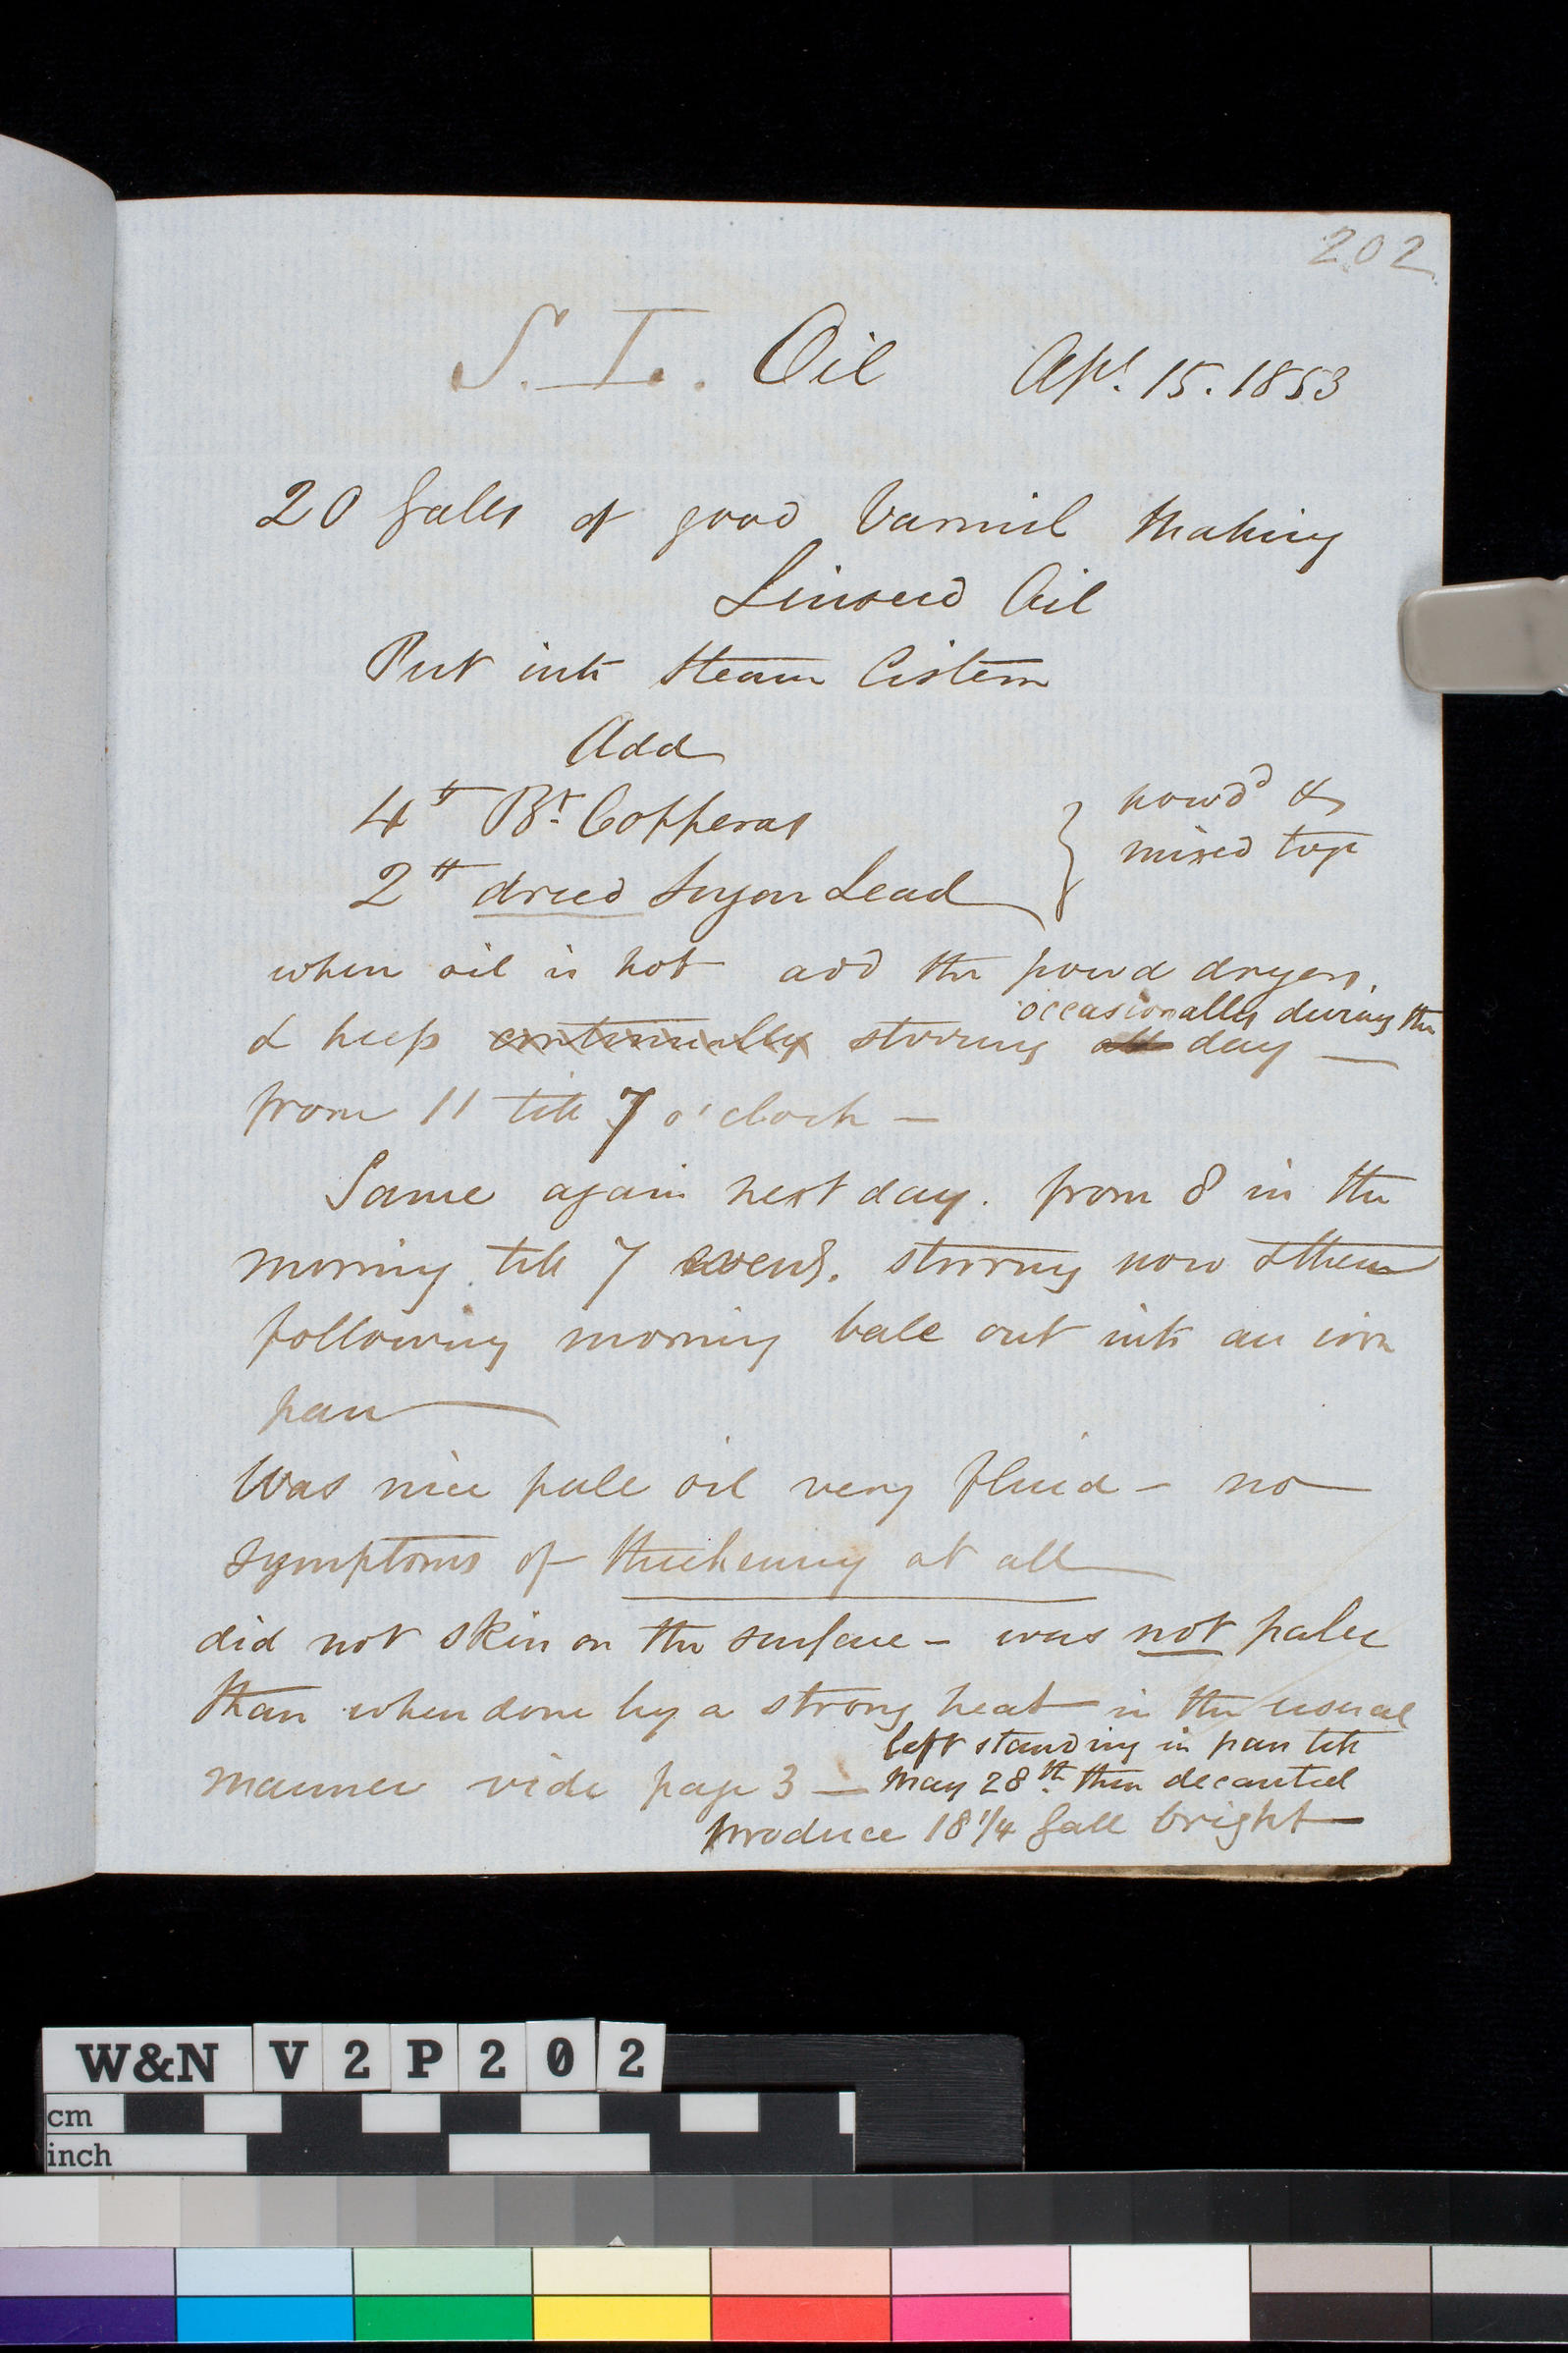 202
S. I. Oil Apl. 15. 1853
20 galls of good Varnish Making
Linseed Oil
Put into Steam Cistern
Add
4 lb Bt. Copperas } powd &
2 lb dried Sugar Lead mixed togr
when oil is hot add the powd dryers,
occasionally during the
& keep continually stirring all day —
from 11 till 7 o'clock —
Same again next day. from 8 in the
morning till 7 eveng. stirring now & then
following morning bale out into an iron
pan
Was nice pale oil very fluid — no
symptoms of thickening at all
did not skin on the surface — was not paler
than when done by a strong heat in the usual
left standing in pan till
manner vide page 3 — May 28th. then decanted
produce 18 1/4 gall bright
W&N V2P202
cm
inch